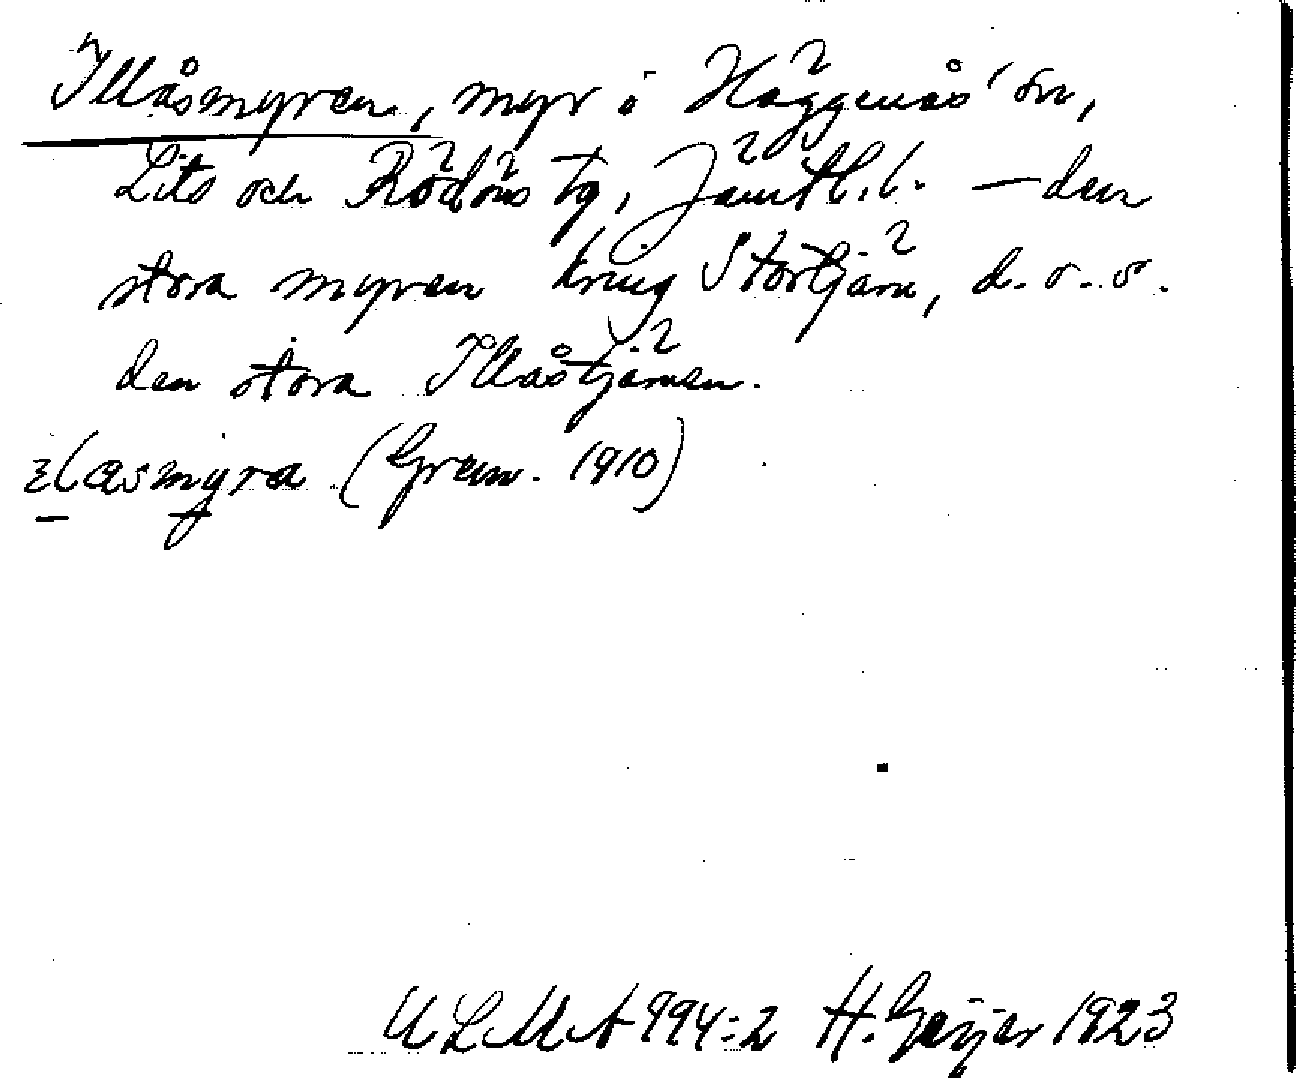 Illåsmyren, myr i Häggenås' sn,
Lits och Rödöns tg, Jämtl. l. — den
stora myren kring Stortjärn, d. v. s.
den stora Illåstjärnen.
(Gren. 1910)
ULMA 994:2 H. Geijer 1923